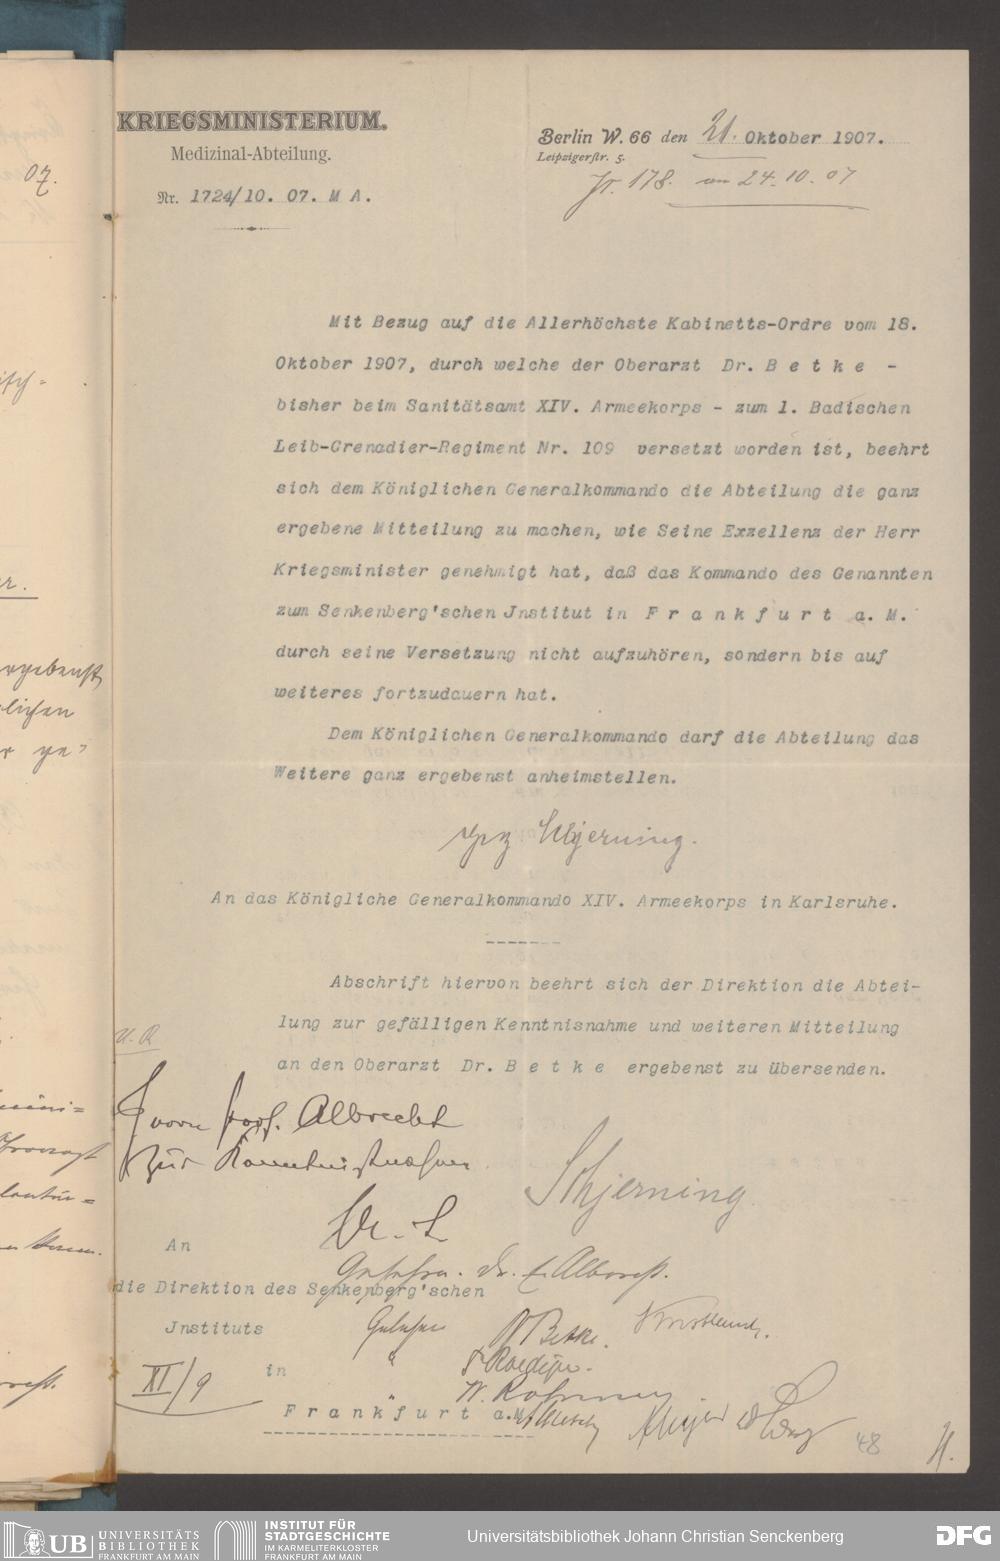 KRIEGSMINISTERIUM.
Medizinal-Abteilung.
Nr. 1724/10. 07. M A.
Berlin W. 66 den 21. Oktober 1907.
Leipzigerstr. 5.
178. 24.10.07
Mit Bezug auf die Allerhöchste Kabinetts-Ordre vom 18.
Oktober 1907, durch welche der Oberarzt Dr. B e t k e -
bisher beim Sanitätsamt XIV. Armeekorps - zum 1. Badischen
Leib-Grenadier-Regiment Nr. 109 versetzt worden ist, beehrt
sich dem Königlichen Generalkommando die Abteilung die ganz
ergebene Mitteilung zu machen, wie Seine Exzellenz der Herr
Kriegsminister genehmigt hat, daß das Kommando des Genannten
zum Senkenberg'schen Jnstitut in F r a n k f u r t a. M.
durch seine Versetzung nicht aufzuhören, sondern bis auf
weiteres fortzudauern hat.
Dem Königlichen Generalkommando darf die Abteilung das
Weitere ganz ergebenst anheimstellen.
gez Schjerning.
An das Königliche Generalkommando XIV. Armeekorps in Karlsruhe.
-------
Abschrift hiervon beehrt sich der Direktion die Abtei-
lung zur gefälligen Kenntnisnahme und weiteren Mitteilung
an den Oberarzt Dr. B e t k e ergebenst zu übersenden.
U. R
Herrn Prof. Albrecht
zur Kenntnisnahme
Schjerning
An
Gesehen. Dr. E. Albrecht.
die Direktion des Senkenberg'schen
Jnstituts
Gelesen
R Betke.
in
XI/9
F r a n k f u r t a.M.
48
07.
ergebenst
lichen
UB UNIVERSITÄTS
BIBLIOTHEK
FRANKFURT AM MAIN
INSTITUT FÜR
STADTGESCHICHTE
IM KARMELITERKLOSTER
FRANKFURT AM MAIN
Universitätsbibliothek Johann Christian Senckenberg
DFG